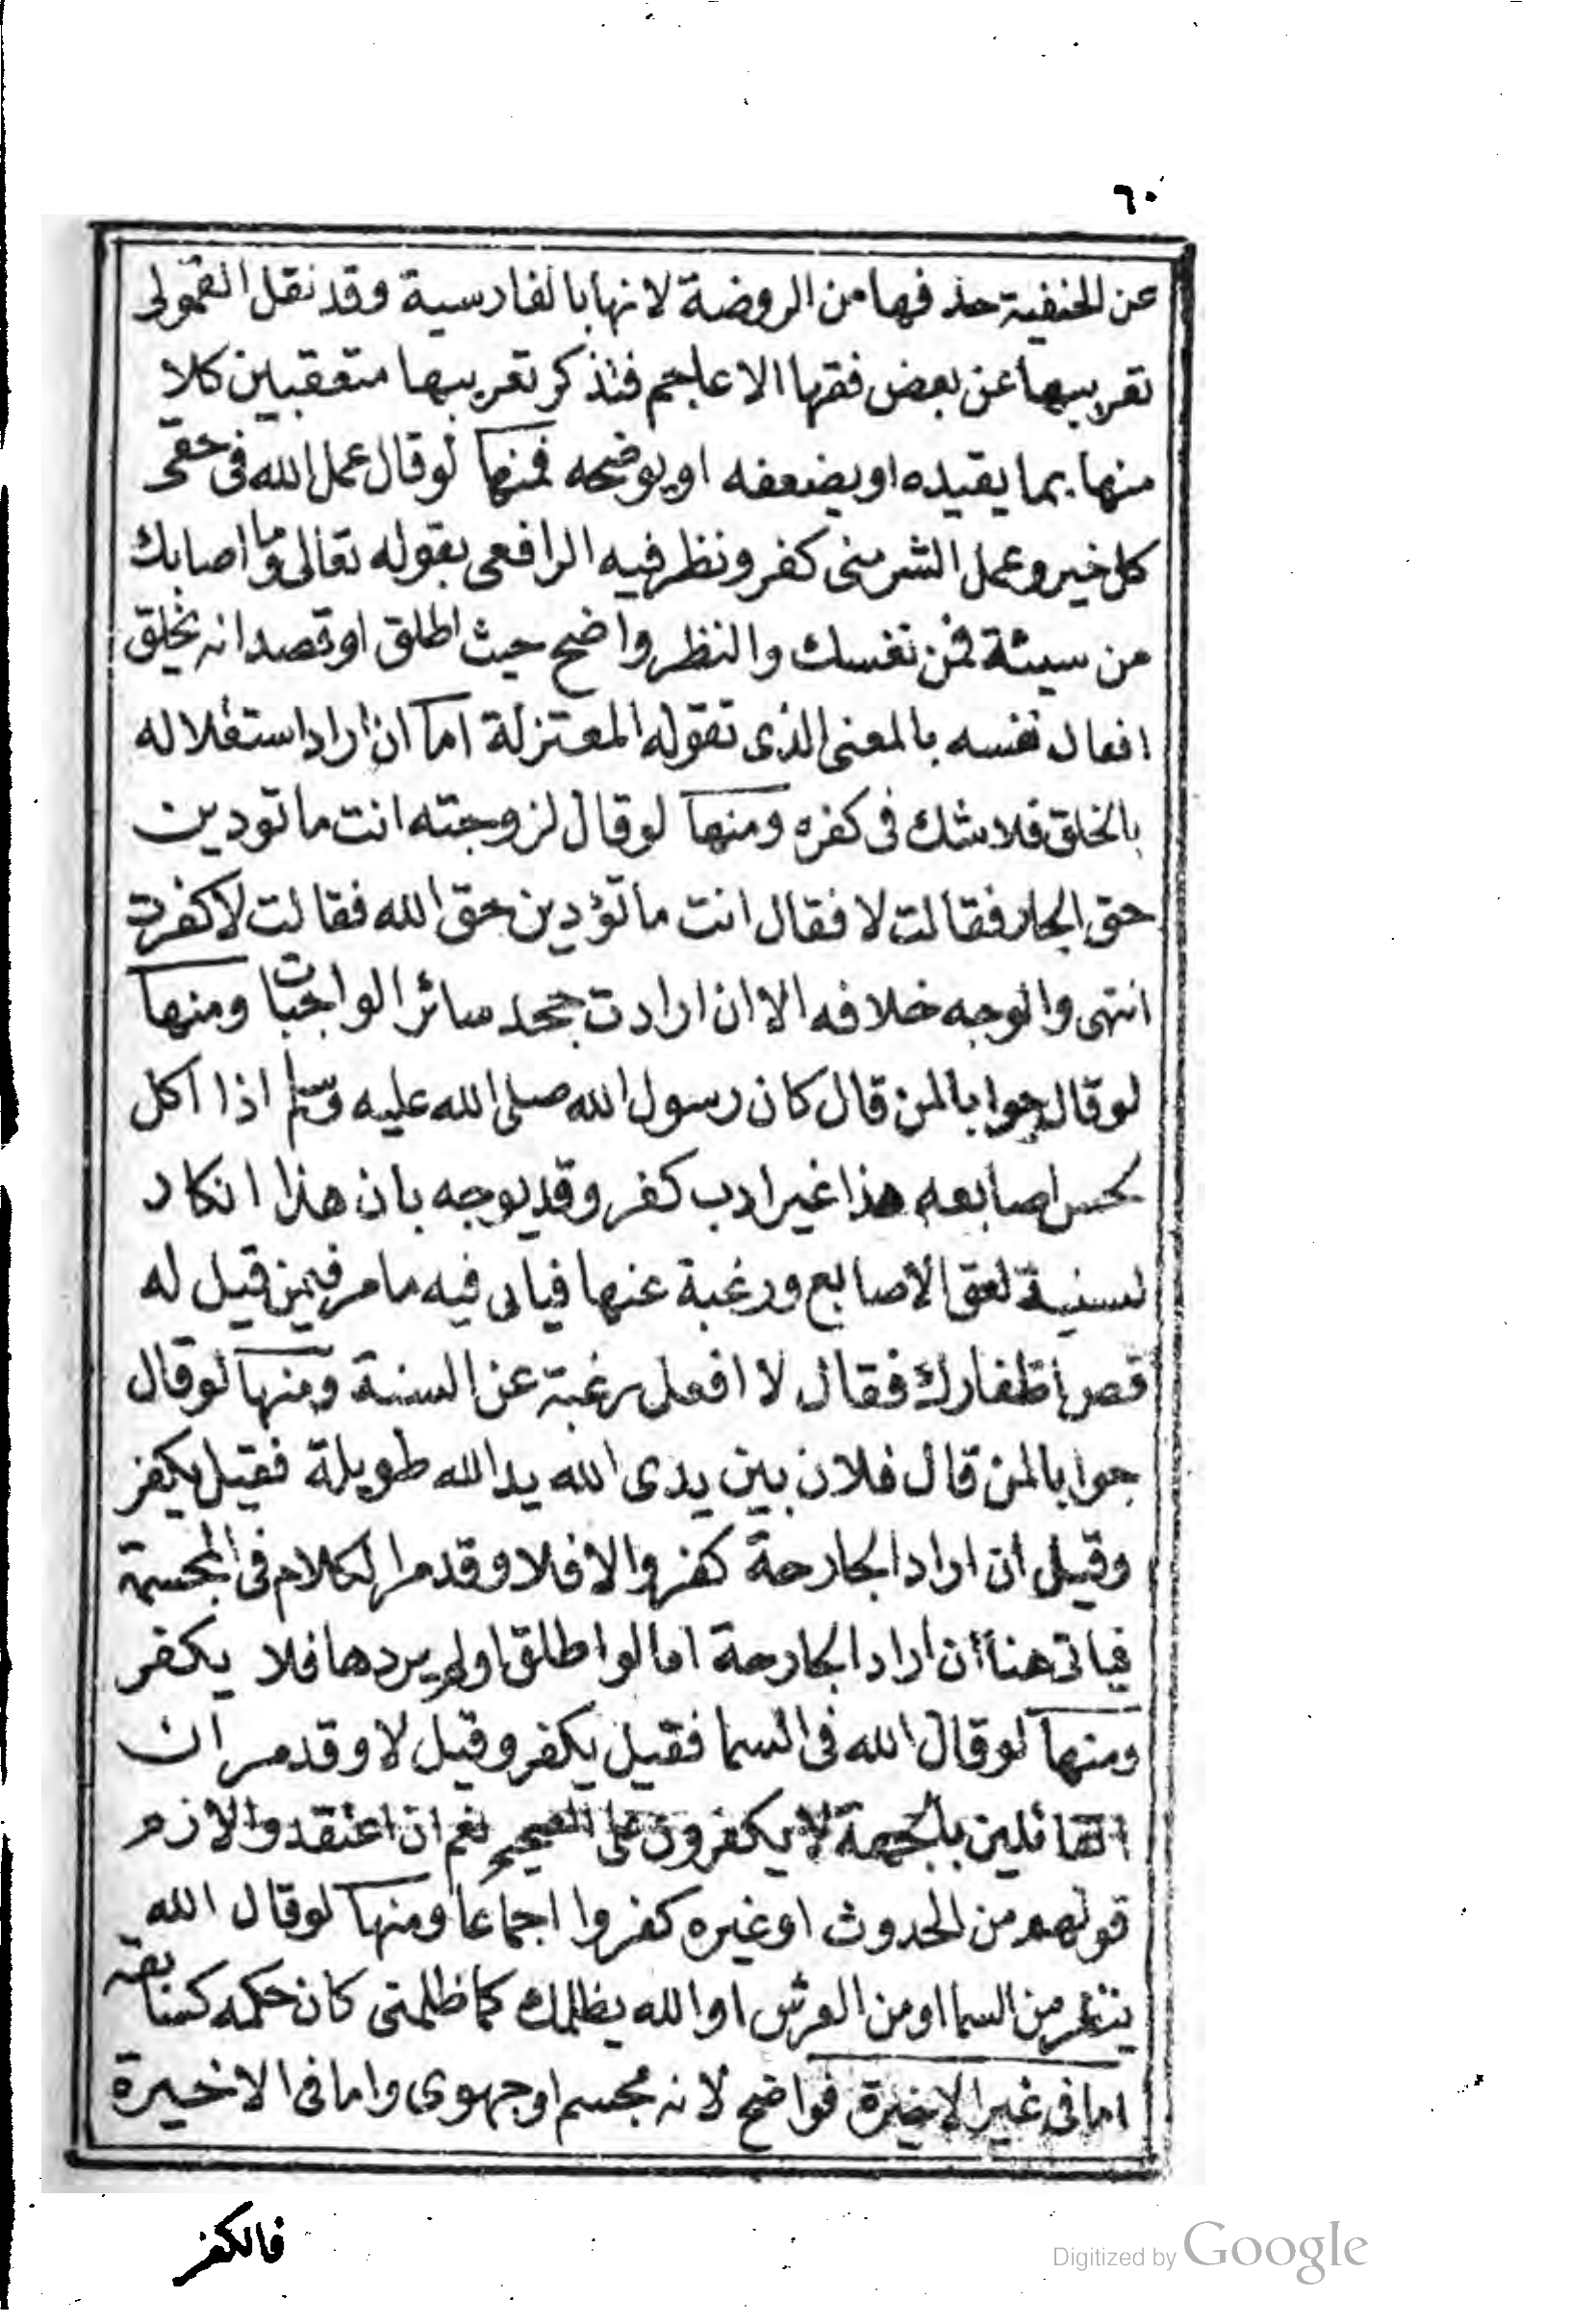 ٦٠
عن الحنفية حذفها من الروضة لانها بالفارسية وقد نقل القمولى
تعريبها عن بعض فقها الاعاجم فنذكر تعريبها متعقبين كلا
منها بما يقيده او يضعفه او يوضحه فمنها لو قال عمل الله فى حقى
كل خير وعمل الشر منى كفر ونظر فيه الرافعى بقوله تعالى وما اصابك
من سيئة فمن نفسك والنظر واضح حيث اطلق او قصد انه يخلق
افعال نفسه بالمعنى الذى تقوله المعتزلة اما ان اراد استقلاله
بالخلق فلا شك فى كفره ومنها لو قال لزوجته انت ما تودين
حق الجار فقالت لا فقال انت ما تؤدين حق الله فقالت لا كفرت
انتهى والوجه خلافه الا ان ارادت جحد سائر الواجبات ومنها
لو قال جوابا لمن قال كان رسول الله صلى الله عليه وسلم اذا اكل
لحس اصابعه هذا غير ادب كفر وقد يوجه بان هذا انكار
لسنية لعق الاصابع ورغبة عنها فياتى فيه ما مر فيمن قيل له
قص اظفارك فقال لا افعل رغبة عن السنة ومنها لو قال
جوابا لمن قال فلان بين يدى الله يد الله طويلة فقيل يكفر
وقيل ان اراد الجارحة كفر والا فلا وقد مر الكلام فى المجسمة
فياتى هنا ان اراد الجارحة اما لو اطلق او لم يردها فلا يكفر
ومنها لو قال الله فى السما فقيل يكفر وقيل لا وقد مر ان
القائلين بالجهة لا يكفرون على الصحيح نعم ان اعتقدوا لازم
قولهم من الحدوث او غيره كفروا اجماعا ومنها لو قال الله
ينظر من السما او من العرش او الله يظلمك كما ظلمتنى كان حكمه كسابقه
اما فى غير الاخيرة فواضح لانه مجسم او جهوى واما فى الاخيرة
فالكفر
Digitized by Google